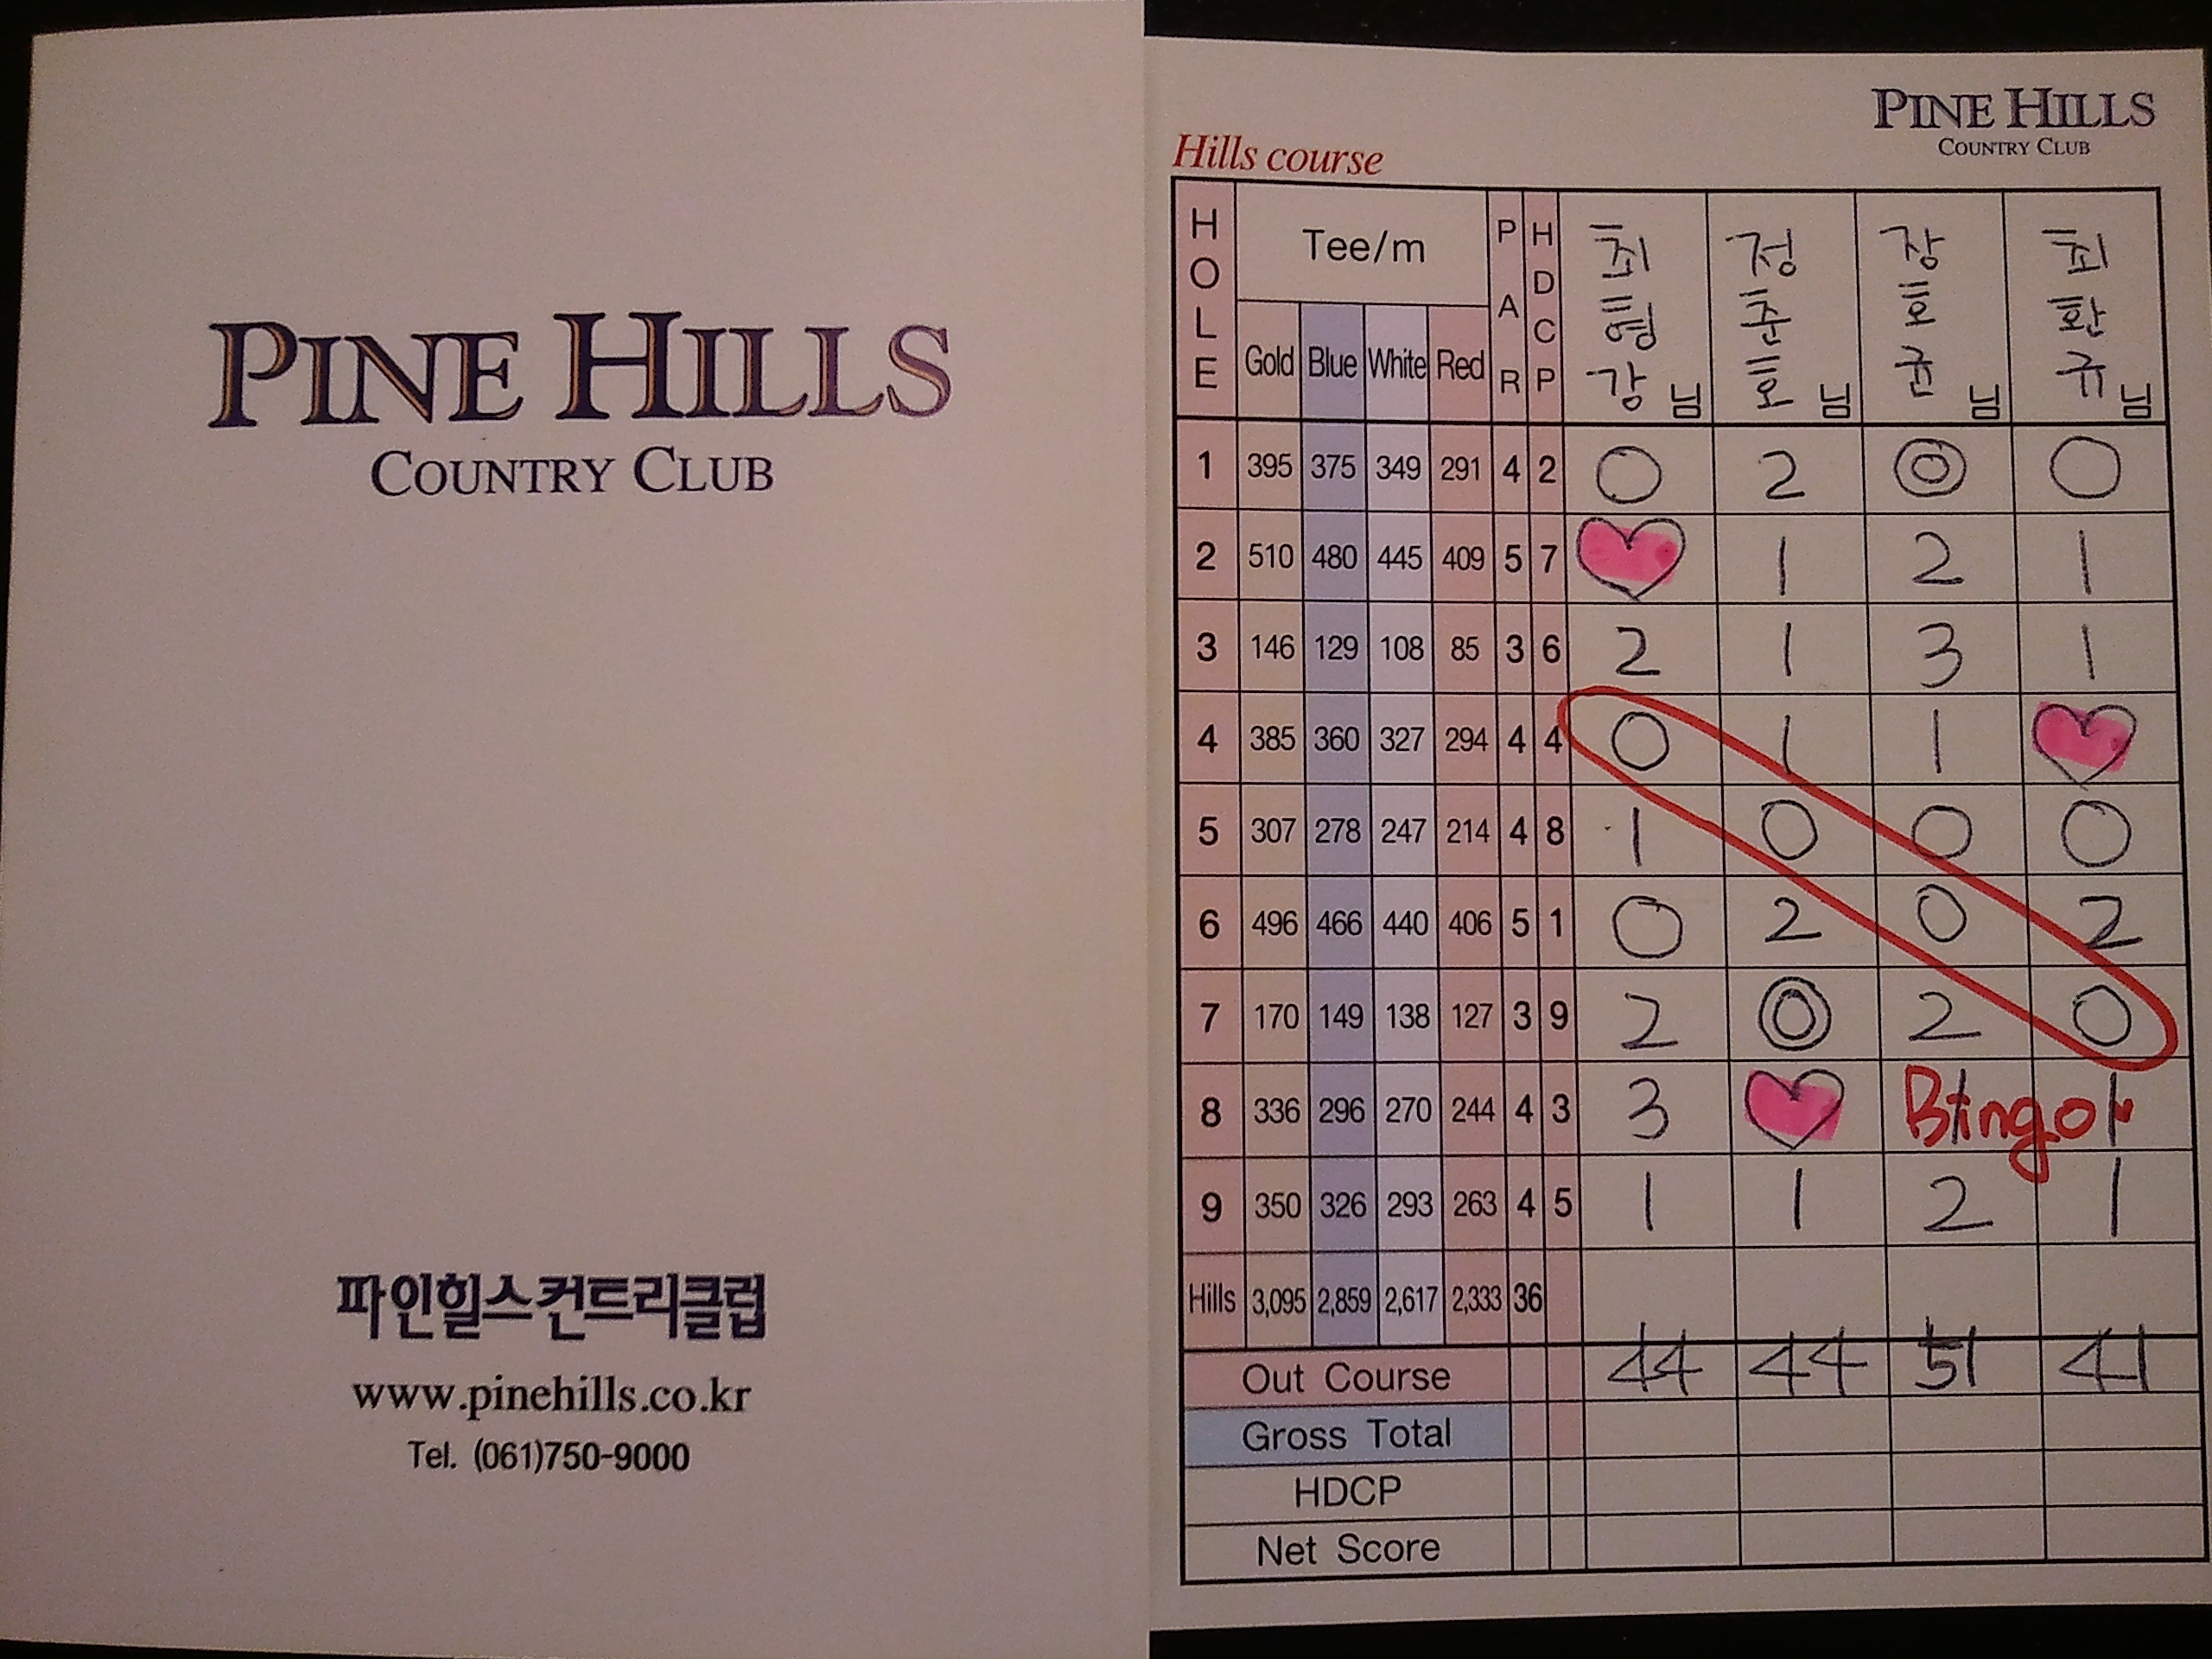 PINE HILLS
COUNTRY CLUB
파인힐스컨트리클럽
www.pinehills.co.kr
Tel. (061)750-9000
PINE HILLS
COUNTRY CLUB
Hills course
HOLE Tee/m PAR HDCP 최형강 님 정준호 님 장호권 님 최환규 님
Gold Blue White Red
1 395 375 349 291 4 2 0 2 ◎ 0
2 510 480 445 409 5 7 ♡ 1 2 1
3 146 129 108 85 3 6 2 1 3 1
4 385 360 327 294 4 4 0 1 1 ♡
5 307 278 247 214 4 8 1 0 0 0
6 496 466 440 406 5 1 0 2 0 2
7 170 149 138 127 3 9 2 ◎ 2 0
8 336 296 270 244 4 3 3 ♡ 1 1
Bingo!
9 350 326 293 263 4 5 1 1 2 1
Hills 3,095 2,859 2,617 2,333 36
Out Course 44 44 51 41
Gross Total
HDCP
Net Score